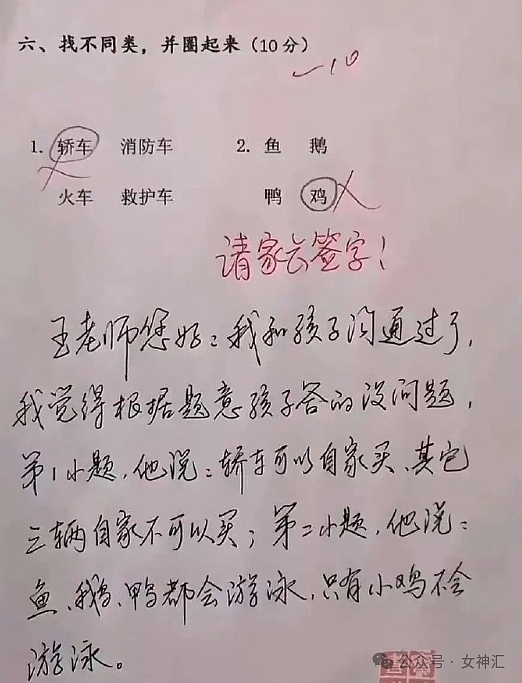 六、找不同类，并圈起来（10分）
-10
1. 轿车 消防车 2. 鱼 鹅
火车 救护车 鸭 鸡
请家长签字！
王老师您好：我和孩子沟通过了，
我觉得根据题意孩子答的没问题，
第1小题，他说：轿车可以自家买、其它
三辆自家不可以买；第二小题，他说：
鱼、鹅、鸭都会游泳，只有小鸡不会
游泳。
公众号·女神汇